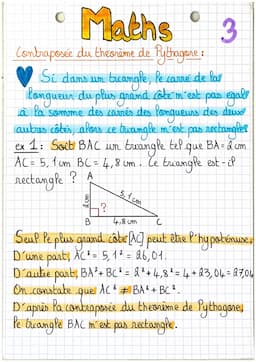 Maths 3
Contraposée du théorème de Pythagore :
Si dans un triangle, le carré de la
longueur du plus grand côté n'est pas égale
à la somme des carrés des longueurs des deux
autres côtés, alors ce triangle n'est pas rectangle.
ex 1: Soit BAC un triangle tel que BA = 2 cm
AC = 5,1 cm BC = 4,8 cm. Ce triangle est-il
rectangle ?
A
2 cm
5,1 cm
?
B
4,8 cm
C
Seul le plus grand côté [AC] peut être l'hypoténuse.
D'une part, AC² = 5,1² = 26,01.
D'autre part, BA² + BC² = 2² + 4,8² = 4 + 23,04 = 27,04
On constate que AC² ≠ BA² + BC².
D'après la contraposée du théorème de Pythagore,
le triangle BAC n'est pas rectangle.